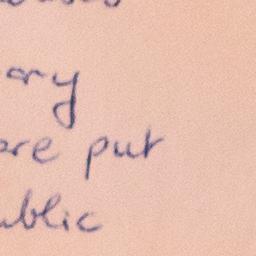 ary
ore put
ublic